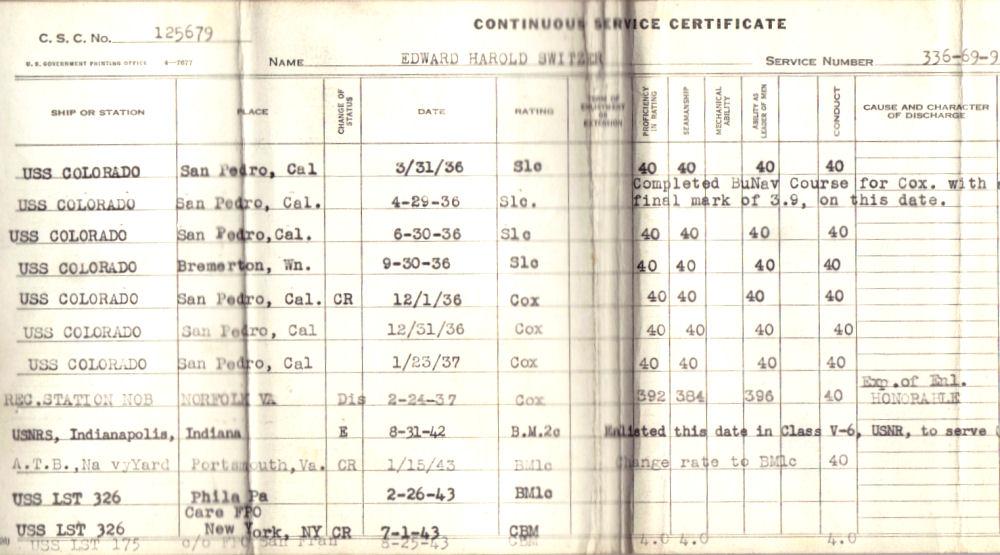 CONTINUOUS SERVICE CERTIFICATE
C. S. C. No. 125679
U. S. GOVERNMENT PRINTING OFFICE 4—7077 NAME EDWARD HAROLD SWITZER SERVICE NUMBER 336-69-9
SHIP OR STATION PLACE CHANGE OF STATUS DATE RATING TERM OF ENLISTMENT OR EXTENSION PROFICIENCY IN RATING SEAMANSHIP MECHANICAL ABILITY ABILITY AS LEADER OF MEN CONDUCT CAUSE AND CHARACTER OF DISCHARGE
USS COLORADO San Pedro, Cal 3/31/36 S1c 40 40 40 40
Completed BuNav Course for Cox. with
USS COLORADO San Pedro, Cal. 4-29-36 S1c. final mark of 3.9, on this date.
USS COLORADO San Pedro,Cal. 6-30-36 S1c 40 40 40 40
USS COLORADO Bremerton, Wn. 9-30-36 S1c 40 40 40 40
USS COLORADO San Pedro, Cal. CR 12/1/36 Cox 40 40 40 40
USS COLORADO San Pedro, Cal 12/31/36 Cox 40 40 40 40
USS COLORADO San Pedro, Cal 1/23/37 Cox 40 40 40 40
Exp.of Enl.
REC.STATION NOB NORFOLK VA Dis 2-24-37 Cox 392 384 396 40 HONORABLE
USNRS, Indianapolis, Indiana E 8-31-42 B.M.2c Enlisted this date in Class V-6, USNR, to serve
A.T.B.,Na vyYard Portsmouth,Va. CR 1/15/43 BM1c Change rate to BM1c 40
USS LST 326 Phila Pa 2-26-43 BM1c
Care FPO
USS LST 326 New York, NY CR 7-1-43 CBM
USS LST 175 c/o FPO San Fran 8-25-43 CBM 4.0 4.0 4.0